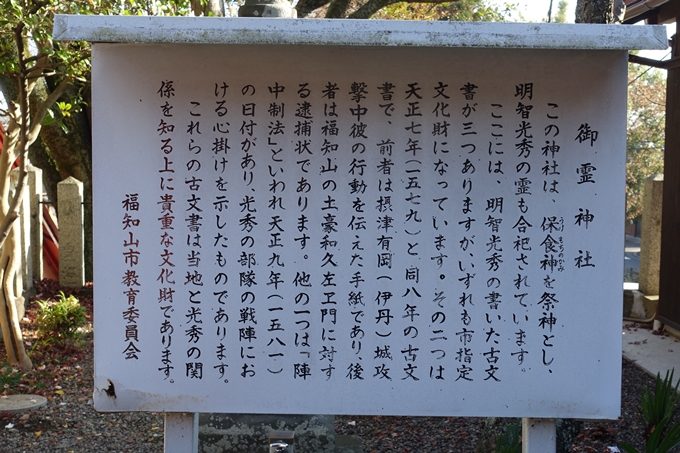 御霊神社
この神社は、保食神を祭神とし、
うけもちのかみ
明智光秀の霊も合祀されています。
ここには、明智光秀の書いた古文
書が三つありますが、いずれも市指定
文化財になっています。その二つは
天正七年（一五七九）と同八年の古文
書で、前者は摂津有岡（伊丹）城攻
撃中彼の行動を伝えた手紙であり、後
者は福知山の土豪和久左ヱ門に対す
る逮捕状であります。他の一つは「陣
中制法」といわれ天正九年（一五八一）
の日付があり、光秀の部隊の戦陣にお
ける心掛けを示したものであります。
これらの古文書は当地と光秀の関
係を知る上に貴重な文化財であります。
福知山市教育委員会